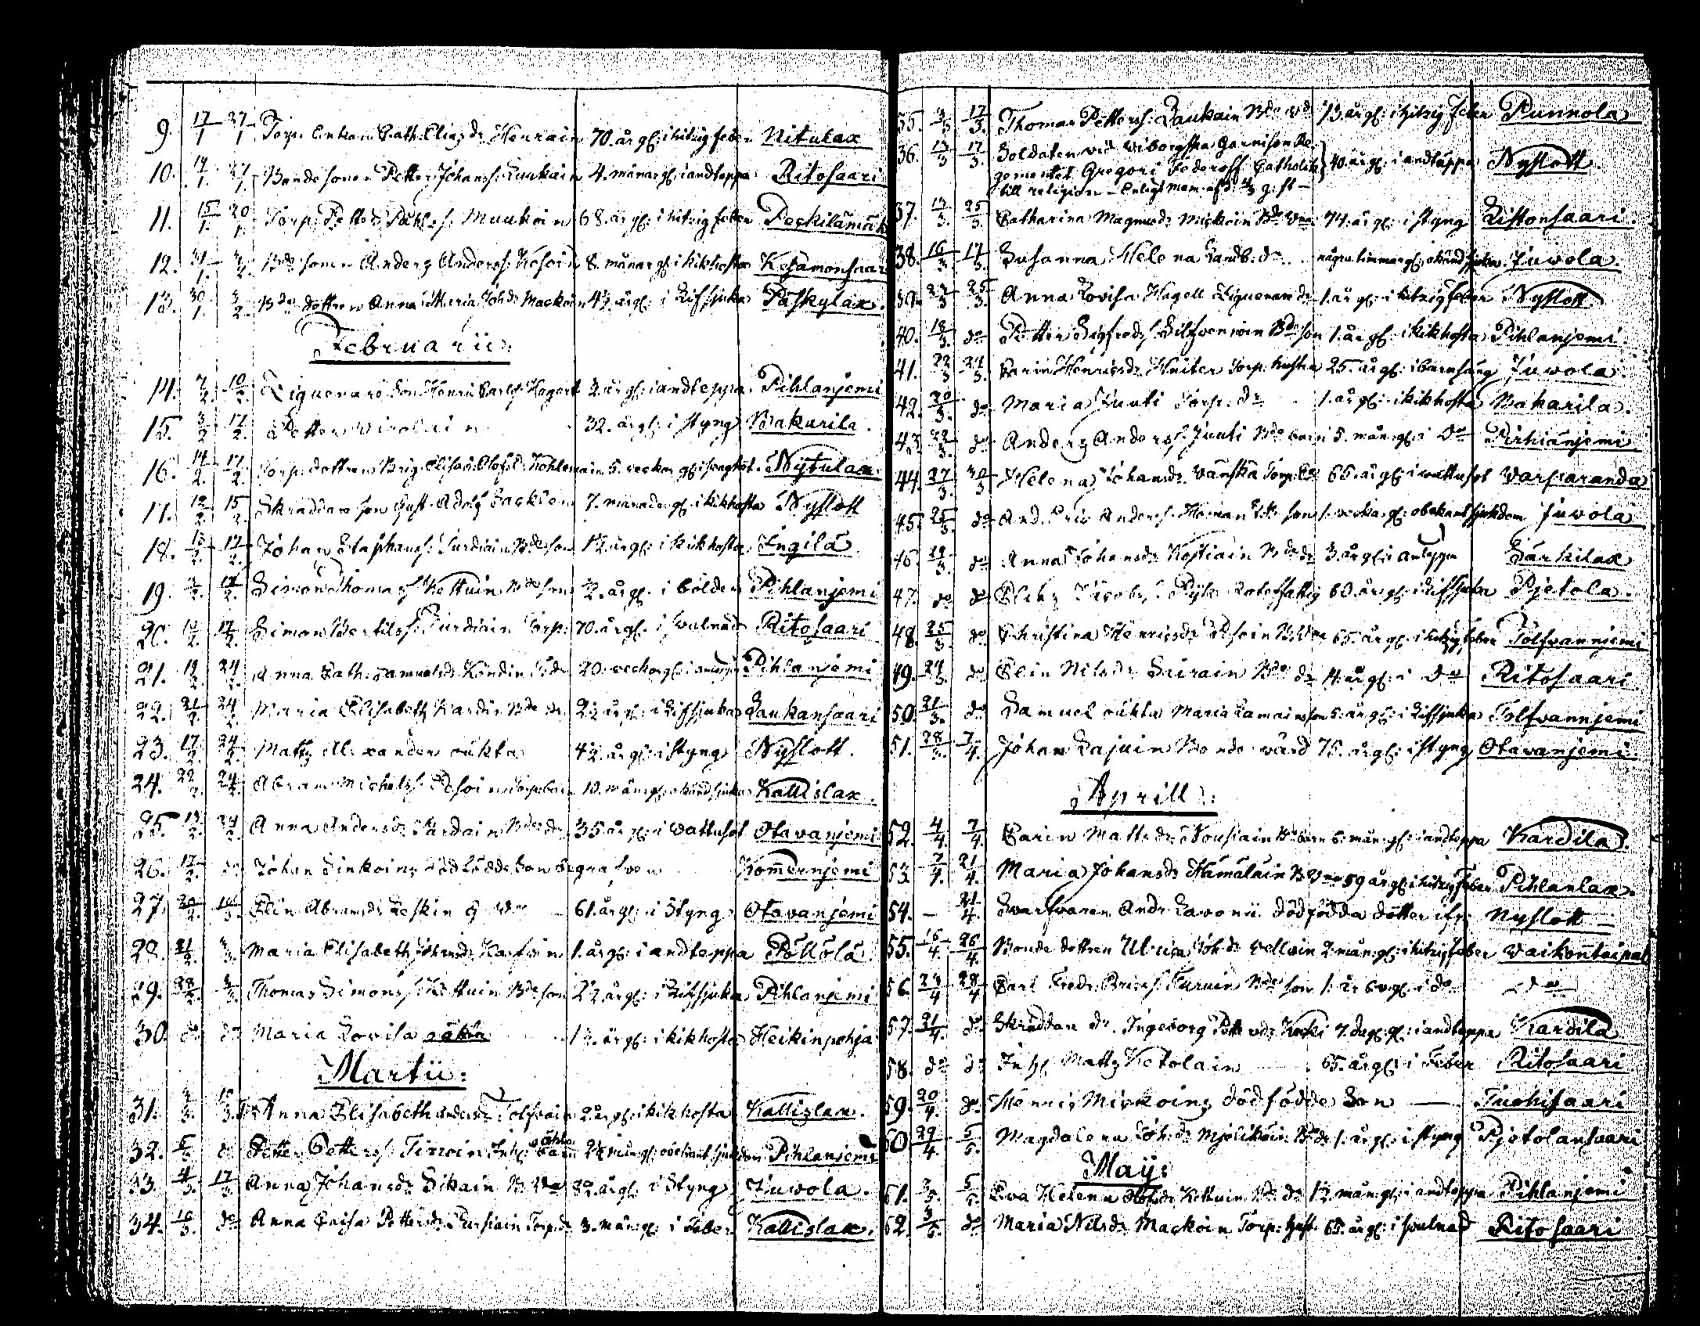 9. 17/1 27/1 Torp. Enkan Cath. Eliæ dr Henrain 70. år gl: i hitzig feber Nitulax
10. 17/1 27/1 Bonde sonen Petter Johanss: Laukain 4. månar gl: i andteppa Ritosaari
11. 15/1 20/1 Torp: Petter Påhls s. Muukoin 68. år gl: i hitzig feber Peckilämäk
12. Bde sonen Anders Anderss: Kosoin 8. månar gl: i kikhosta Kesamonsaari
13. 30/1 3/2 Bde dottren Anna Maria Joh: dr Mackoin 4½ år gl: i Rifsjuka Päskylax
Februarii:
14. 7/2 10/2 Liguenarie son Henric Carls: Hagert 2. år gl: i andteppa Pihlanjemi
15. 3/2 17/2 Petter Wirolain 32. år gl: i styng Wakurila.
16. 14/2 17/2 Torp: dottren Brig: Elisab: Olofsd: Kohlemain 5. veckor gl: Nytulax
17. 12/2 15/2 Skräddare son Gust: Adolf Backlen 7. månader gl: i kikhosta Nyslott
18. 13/2 17/2 Johan Staphans: Turdiain Bde son 1½ år gl: i kikhosta Ingila
19. 17/2 Simon Thomas s. Kettuin Bde son ½ år gl. i bölder Pihlanjemi
20. 12/2 17/2 Simon Bertils s: Turdiain Torp: 70. år gl. i swulnad Ritosaari
21. 19/2 24/2 Anna Cath: Samuelsdr Kondin 20. veckor gl: i andteppa Pihlanjemi
22. 21/2 24/2 Maria Elisabeth Kardis Bde dr 2½ år gl: i Rifsjuka Laukansaari
23. 17/2 24/2 Matts Alexander oäkta 4½ år gl: i styng Nyslott.
24. 22/2 24/2 Abram Michels s: Asoin Torp. barn 10. mån: gl: okänd sjuka Kallislax.
25. 19/2 24/2 Anna Andersdr Pardain Bde dr 35 år gl: i wattusot Otavanjemi
26. 17/2 do Johan Sinkoins dödfödde son begrafwen Kommernjemi
27. 20/2 10/3 Elin Abramsdr Leskin 61. år gl: i Styng Otavanjemi
28. 21/2 3/3 Maria Elisabeth Karhuin 1. år gl: i andteppa Pöllölä
29. 28/2 3/3 Thomas Simons s: Kettuin Bde son 2½ år gl: i Rifsjuka Pihlanjemi
30. do do Maria Lovisa oäkta 1½ år gl: i kikhosta Heikinpohja
Martii:
31. 3/3 10/3 Anna Elisabeth Andersdr Tolfwain 2. år gl: i kikhosta Kallislax.
32. 5/3 do Petter Petters s: Tirroin Inh: barn 2½ mån: gl: obekant sjukdom Pihlanjemi
33. 4/3 17/3 Anna Johansdr Sikain B. 32. år gl: i Styng Juvola.
34. 16/3 do Anna Caisa Pettersdr Pursiain Torp: dr 3. mån: gl: i Feber Kallislax.
35. 3/3 17/3 Thomas Petters s: Laukain Bde 73. år gl: i hitzig feber Punnola
36. 13/3 17/3 Soldaten wid Wiborgska Garnison Re-
gementet Gregori Federoff Catholik 40. år gl: i andtäppa Nyslott.
till religion – Enligt mem: af d:
37. 17/3 25/3 Catharina Magnusdr Mickoin Bde 74. år gl: i styng Listonsaari.
38. 16/3 17/3 Susanna Helena Landb: dr några timmar gl: okänd sjuka Juvola.
39. 23/3 25/3 Anna Lovisa Hagert Liguenar. dr 1. år gl: i hitzig feber Nyslott
40. 18/3 do Petter Sigfreds s. Silfvennoin Bde son 1. år gl: i kikhosta Pihlanjemi
41. 22/3 24/3 Carin Henricsdr Huiter Torp. hustru 25. år gl: i barnsäng Juvola
42. 20/3 do Maria Juuti Torp: dr 1. år gl: i kikhosta Wakarila.
43. 22/3 do Anders Anders s: Juuti Bde barn 5. mån: gl: i do Pirhianjemi
44. 27/3 30/3 Helena Johansdr Wänskä Torp: 65. år gl: i wattusot Warparanda
45. 25/3 do And. Eric Anders s: Hieman Bde son 1. vecka gl: obekant sjukdom Juvola
46. 22/3 do Anna Johansdr Kostiain Bde dr 3. år gl: i Andteppa Särkilax
47. do do Elias Jacobs s. Pijk Rotefattig 60. år gl: i Rifsjuka Pjetola.
48. 25/3 do Christina Henricsdr Asoin B. 65. år gl: i hitzig feber Tolfvannjemi
49. 27/3 do Elin Nilsdr Sairain Bde dr 14. år gl: i do Ritosaari
50. 21/3 do Samuel oäkta Maria Lamains son 5. år gl: i Rifsjuka Tolfvannjemi
51. 28/3 7/4 Johan Lajuin Bonde värd 75. år gl: i styng Otavanjemi
Aprill:
52. 4/4 7/4 Carin Mattsdr Nousiain Bde barn 6. mån: gl: i andteppa Kardila.
53. 7/4 21/4 Maria Johansdr Hämäläin B. 59 år gl: i hitzig feber Pihlanlax.
54. – 21/4 Swarfvaren And: Lavonii dödfödda dotter Nyslott –
55. 16/4 26/4 Bonde dottren Ulrica Joh: dr Wellain 2. mån: gl: i hitzig feber Waikontaipal
56. 24/4 28/4 Carl Fredr: Erics s: Turuin Bde son 1. år 6 v gl: i do do
57. 21/4 do Skräddar dr Ingeborg Pettersdr Koski 7. dag: gl: i andteppa Kardila
58. do do Inh: Matts Ketolain 65. år gl: i Feber Ritosaari
59. 20/4 do Henric Mickoins dödfödde Son – Tuohisaari
60 29/4 5/5 Magdalena Joh: dr Mjelikäin Bde dr 1. år gl: i styng Pjetolansaari
Maÿ:
61. 3/5 5/5 Eva Helena Olofsdr Kettuin Bde dr 1½ mån: gl: i andteppa Pihlanjemi
62. 3/5 do Maria Nilsdr Mackoin Torp: hust: 65. år gl: i swulnad Ritosaari